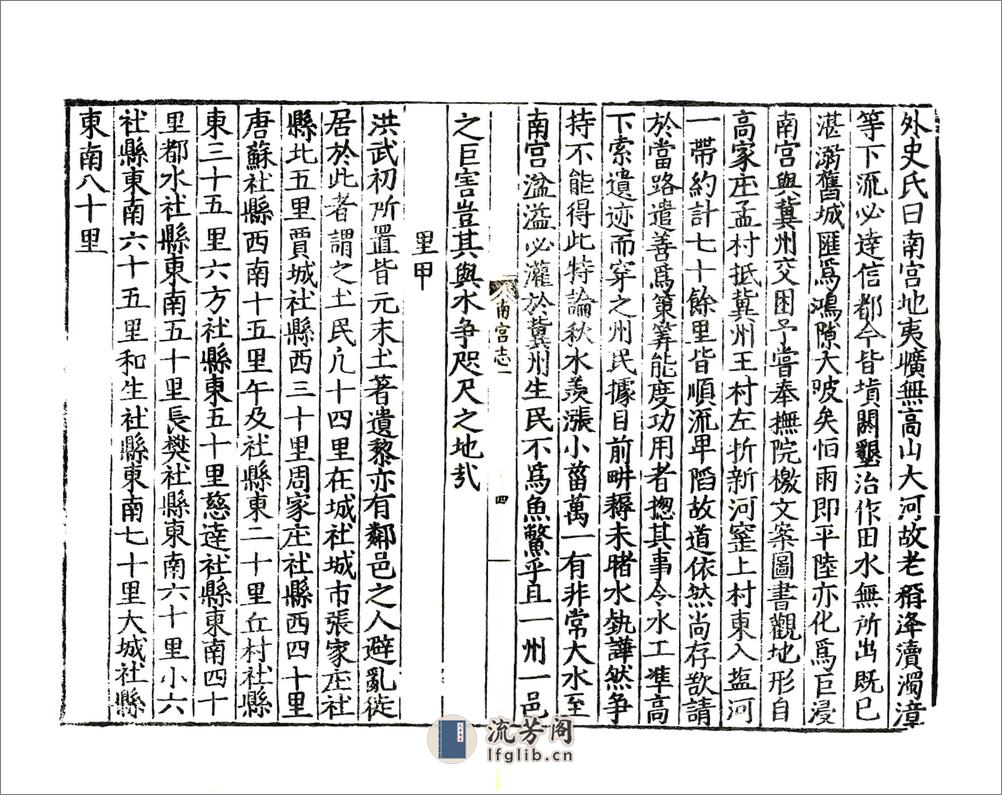 外史氏曰南宫地夷曠無高山大河故老稱洚瀆濁漳
等下流必達信都今皆填閼墾治作田水無所出既已
湛溺舊城匯爲鴻隙大陂矣怕雨即平陸亦化爲巨浸
南宫與冀州交困予嘗奉撫院檄文案圖書觀地形自
高家庄孟村抵冀州王村左折新河窐上村東入塩河
一帶約計七十餘里皆順流卑䧟故道依然尚存欲請
於當路遣善爲策筭能度功用者揔其事令水工凖高
下索遺迹而穿之州民據目前畊耨未睹水埶譁然争
持不能得此特論秋水羨漲小菑萬一有非常大水至
南宫湓溢必灌於冀州生民不爲魚鱉乎且一州一邑
之巨害豈其與水争咫尺之地㢤
南宫志
四
里甲
洪武初所置皆元末土著遺黎亦有鄰邑之人避亂徙
居於此者謂之土民凢十四里在城社城市張家庄社
縣北五里賈城社縣西三十里周家庄社縣西四十里
唐蘇社縣西南十五里午及社縣東二十里丘村社縣
東三十五里六方社縣東五十里慈達社縣東南四十
里都水社縣東南五十里長樊社縣東南六十里小六
社縣東南六十五里和生社縣東南七十里大城社縣
東南八十里
流芳阁
lfglib.cn